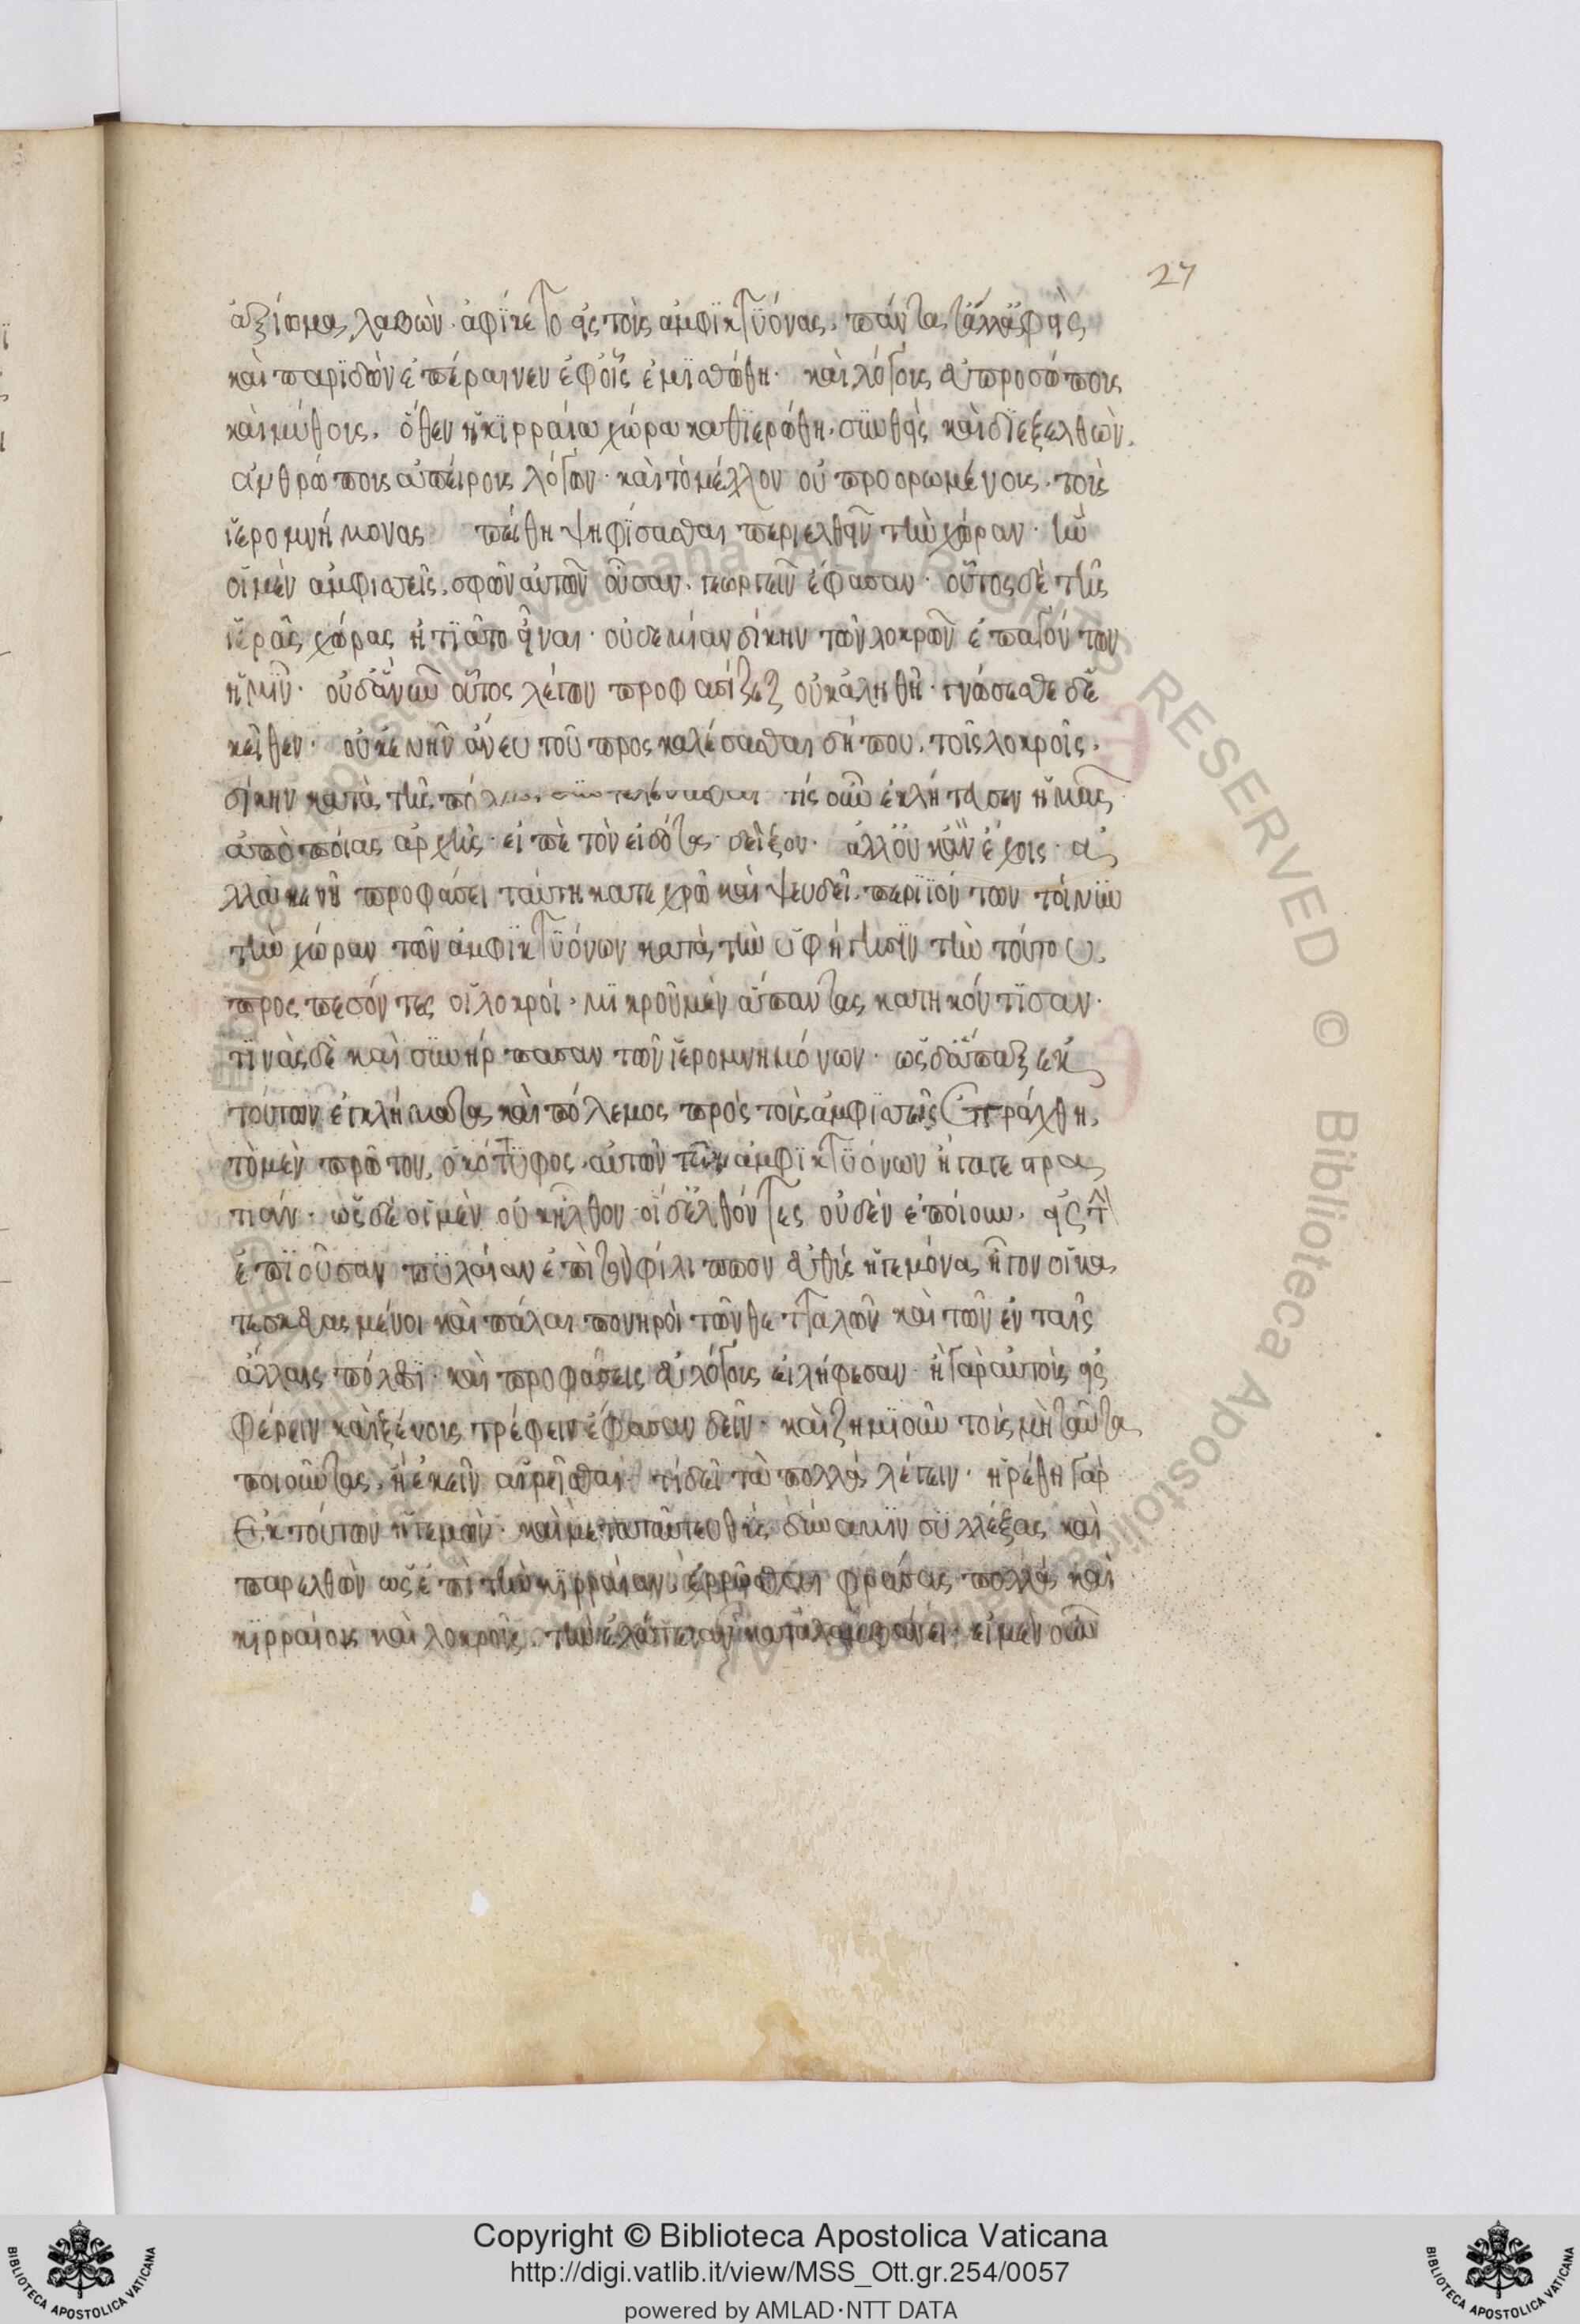 27
ἀξίωμα λαβὼν. ἀφίκετο εἰς τοὺς ἀμφικτϋόνας. πάντα τἄλλ' ἀφεὶς
καὶ παριδὼν ἐπέραινεν ἐφ' οἷς ἐμισθώθη. καὶ λόγους εὐπροσώπους
καὶ μύθους. ὅθεν ἡ κιρραία χώρα καθιερώθη. συνθεὶς καὶ διεξελθὼν.
ἀνθρώπους ἀπείρους λόγων. καὶ τὸ μέλλον οὐ προορωμένους. τοὺς
ἱερομνήμονας πείθη ψηφίσασθαι περιελθεῖν τὴν χώραν. ἣν
οἱ μὲν ἀμφισεῖς. σφῶν αὐτῶν οὖσαν. γεωργεῖν ἔφασαν. οὗτος δὲ τῆς
ἱερᾶς χώρας ᾐτιᾶτο εἶναι. οὐδεμίαν δίκην τῶν λοκρῶν ἐπαγόντων
ἡμῖν. οὐδ' ἃ νῦν οὗτος λέγων προφασίζεται οὐκ ἀληθῆ. γνώσεσθε δ' ἐ
κεῖθεν. οὐκ ἐνῆν ἄνευ τοῦ προσκαλέσασθαι δήπου. τοῖς λοκροῖς.
δίκην κατὰ τῆς πόλεως συντελέσασθαι τίς οὖν ἐκλήτευσεν ἡμᾶς
ἀπὸ ποίας ἀρχῆς. εἰπὲ τὸν εἰδότα. δεῖξον. ἀλλ' οὐκ ἂν ἔχοις. ἀ
λλὰ κενῆ προφάσει ταύτη κατεχρῶ καὶ ψευδεῖ. περιϊόντων τοίνυν
τὴν χώραν τῶν ἀμφικτϋόνων κατὰ τὴν ὑφήγησιν τὴν τούτου.
προσπεσόντες οἱ λοκροί. μικροῦ μὲν ἅπαντας κατηκόντισαν.
τινὰς δὲ καὶ συνήρπασαν τῶν ἱερομνημόνων. ὡς δ' ἅπαξ ἐκ
τούτων ἐγκλήματα καὶ πόλεμος πρὸς τοὺς ἀμφισεῖς ἐταράχθη.
τὸ μὲν πρῶτον. ὁ κότυφος. αὐτῶν τῶν ἀμφικτϋόνων ἤγαγε στρα
τιάν. ὡς δὲ οἱ μὲν οὐκ ἦλθον. οἱ δ' ἐλθόντες οὐδὲν ἐποίουν. εἰς τὴν
ἐπιοῦσαν πυλαίαν ἐπὶ τὸν φίλιππον εὐθὺς ἡγεμόνα ἦγον οἱ κα
τεσκευασμένοι καὶ πάλαι πονηροὶ τῶν θετταλῶν καὶ τῶν ἐν ταῖς
ἄλλαις πόλεσι. καὶ προφάσεις εὐλόγους εἰλήφεσαν. ἢ γὰρ αὐτοὺς εἰς
φέρειν καὶ ξένους τρέφειν ἔφασαν δεῖν. καὶ ζημιοῦν τοὺς μὴ ταῦτα
ποιοῦντας. ἢ ἐκεῖν αἱρεῖσθαι. τί δεῖ τὰ πολλὰ λέγειν. ἡρέθη γὰρ
ἐκ τούτων ἡγεμὼν. καὶ μετὰ ταῦτ' εὐθὺς δύναμιν συλλέξας καὶ
παρελθὼν ὡς ἐπὶ τὴν κιρραίαν. ἐρρῶσθαι φράσας πολλὰ καὶ
κιρραίοις καὶ λοκροῖς. τὴν ἐλάτειαν καταλαμβάνει. εἰ μὲν οὖν
Copyright © Biblioteca Apostolica Vaticana
http://digi.vatlib.it/view/MSS_Ott.gr.254/0057
powered by AMLAD·NTT DATA